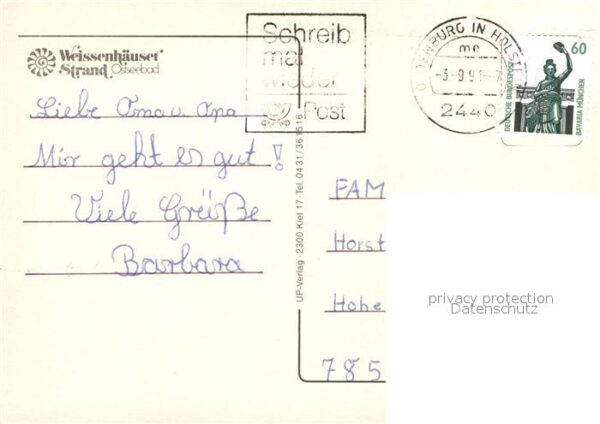 Weissenhäuser
Strand Ostseebad
Schreib
mal
wieder
Post
OLDENBURG IN HOLST
mc
-3.-9.91-
2440
60
DEUTSCHE BUNDESPOST
BAVARIA MÜNCHEN
Liebe Oma u. Opa
Mir geht es gut!
Viele Grüße
Barbara
UP-Verlag · 2300 Kiel 17 · Tel. 0431/361516
FAM
Horst
Hohe
785
privacy protection
Datenschutz